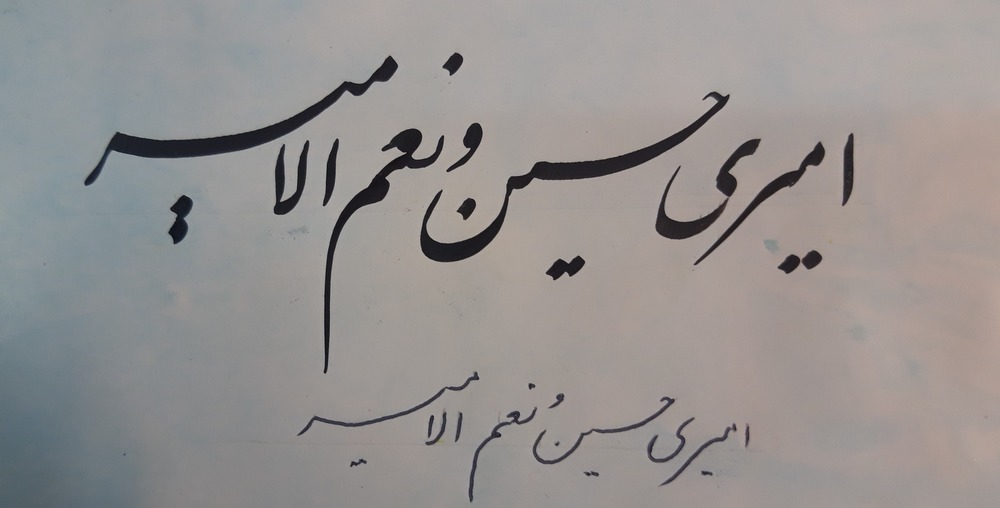 امیری حسین و نعم الامیر
امیری حسین و نعم الامیر